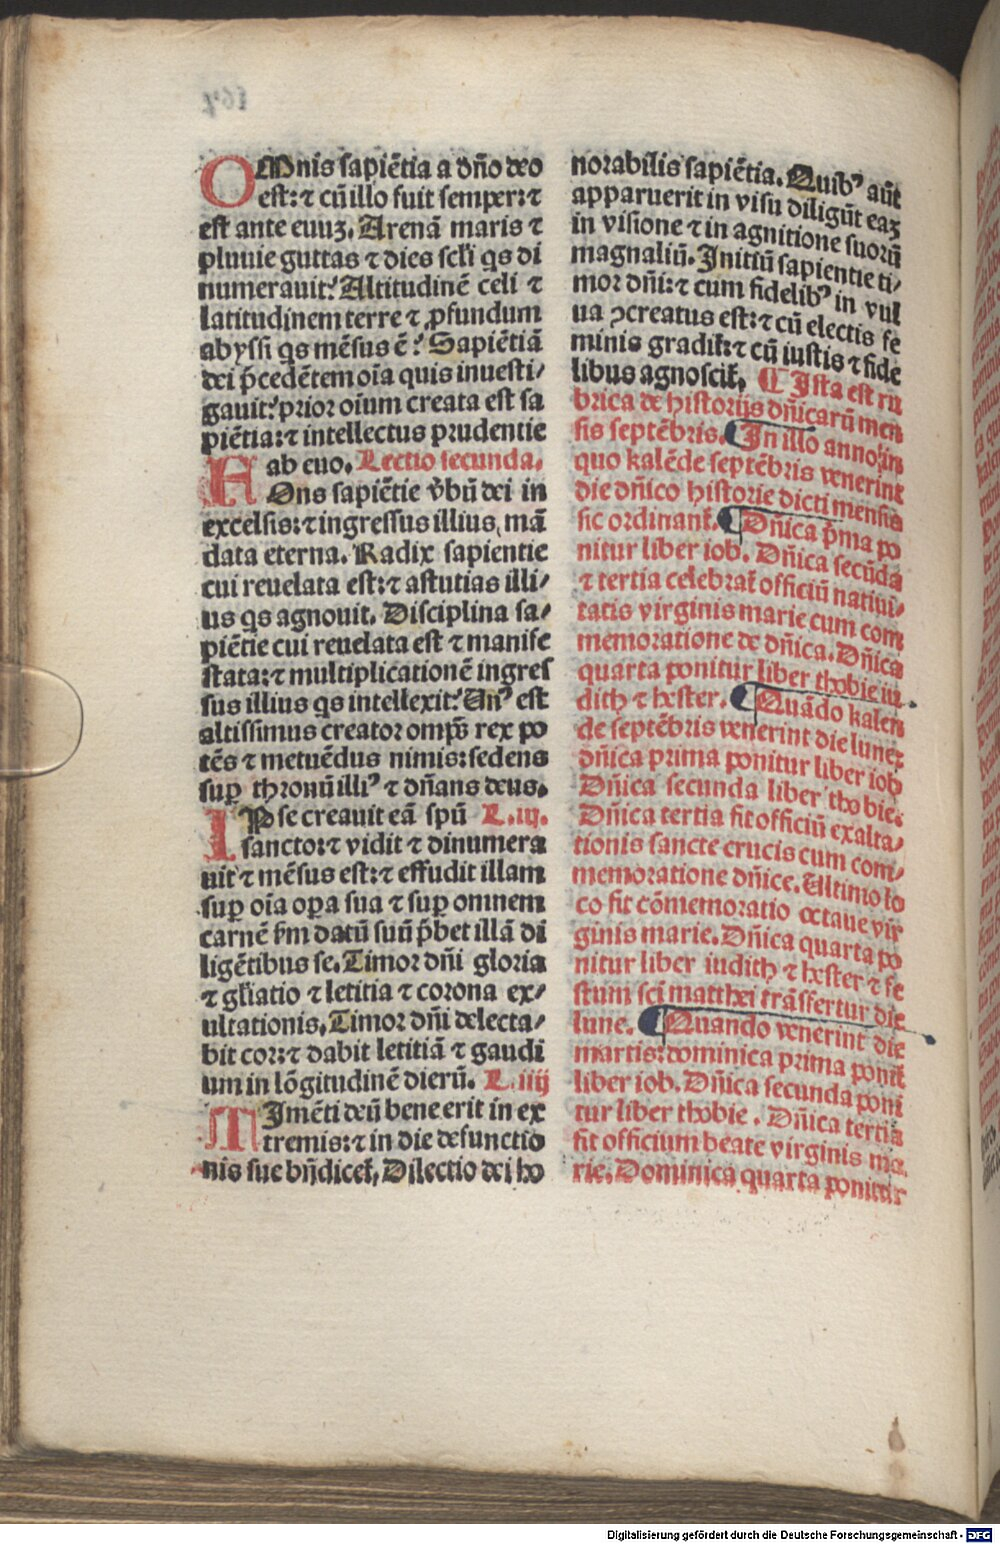 OMnis sapiẽtia a dño deo
est: ⁊ cũ illo fuit semper: ⁊
est ante euuꝫ. Arenã maris ⁊
pluuie guttas ⁊ dies scl̃i qs di
numerauit: Altitudinẽ celi ⁊
latitudinem terre ⁊ ꝓfundum
abyssi qs mẽsus ẽ: Sapiẽtiã
dei p̃cedẽtem oĩa quis inuesti/
gauit: prior oĩum creata est sa
piẽtia: ⁊ intellectus prudentie
ab euo. Lectio secunda.
FOns sapiẽtie v̾bũ dei in
excelsis: ⁊ ingressus illius mã
data eterna. Radix sapientie
cui reuelata est: ⁊ astutias illi/
us qs agnouit. Disciplina sa/
piẽtie cui reuelata est ⁊ manife
stata: ⁊ multiplicationẽ ingres
sus illius qs intellexit: Unꝰ est
altissimus creator omp̃s rex po
tẽs ⁊ metuẽdus nimis: sedens
suꝑ thronũ illiꝰ ⁊ dñans deus.
IPse creauit eã spũ L. iij.
sancto: ⁊ vidit ⁊ dinumera
uit ⁊ mẽsus est: ⁊ effudit illam
suꝑ oĩa oꝑa sua ⁊ suꝑ omnem
carnẽ s̃m datũ suũ p̃bet illã di
ligẽtibus se. Timor dñi gloria
⁊ gl̃iatio ⁊ letitia ⁊ corona ex/
ultationis. Timor dñi delecta/
bit cor: ⁊ dabit letitiã ⁊ gaudi
um in lõgitudinẽ dierũ. L. iiij
TImẽti deũ bene erit in ex
tremis: ⁊ in die defunctio
nis sue bñdicet̃. Dilectio dei ho
norabilis sapiẽtia. Quibꝰ aũt
apparuerit in visu diligũt eaꝫ
in visione ⁊ in agnitione suorũ
magnaliũ. Initiũ sapientie ti/
mor dñi: ⁊ cum fidelibꝰ in vul
ua ꝯcreatus est: ⁊ cũ electis fe
minis gradit̃: ⁊ cũ iustis ⁊ fide
libus agnoscit̃. ¶ Ista est ru
brica de historijs dñicarũ men
sis septẽbris. ¶ In illo anno in
quo kalẽde septẽbris venerint
die dñico historie dicti mensis
sic ordinant̃. ¶ Dñica p̃ma po
nitur liber iob. Dñica secũda
⁊ tertia celebrat̃ officiũ natiui/
tatis virginis marie cum com
memoratione de dñica. Dñica
quarta ponitur liber thobie iu
dith ⁊ hester. ¶ Quãdo kalen
de septẽbris venerint die lune:
dñica prima ponitur liber iob
Dñica secunda liber thobie:
Dñica tertia fit officiũ exalta/
tionis sancte crucis cum com/
memoratione dñice. Ultimo lo
co fit cõmemoratio octaue vir
ginis marie. Dñica quarta po
nitur liber iudith ⁊ hester ⁊ fe
stum sci matthei trãsfertur die
lune. ¶ Quando venerint die
martis: dominica prima ponit̃
liber iob. Dñica secunda poni
tur liber thobie. Dñica tertia
fit officium beate virginis ma
rie. Dominica quarta ponitur
Digitalisierung gefördert durch die Deutsche Forschungsgemeinschaft - DFG